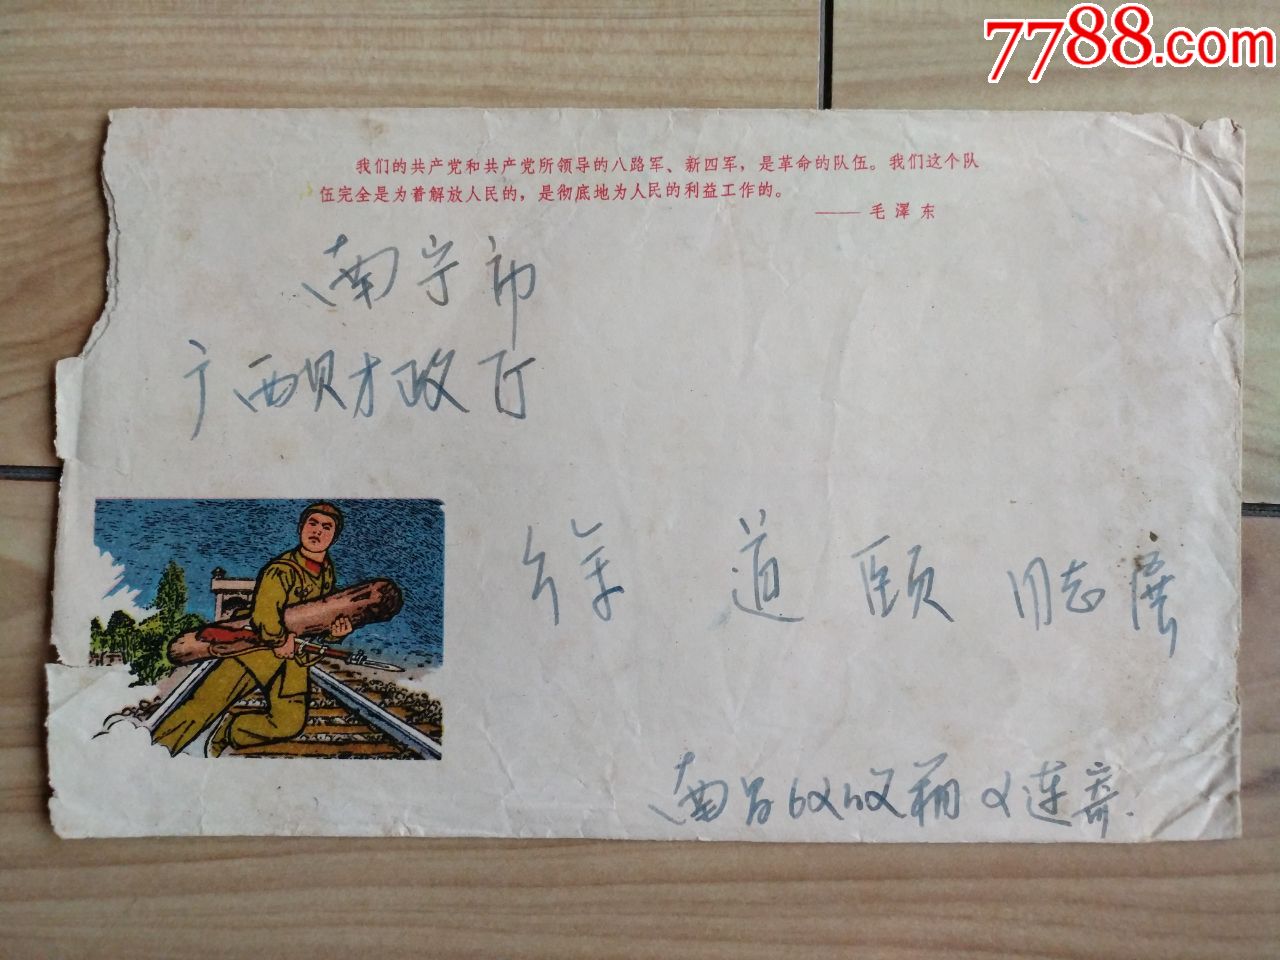 7788.com
我们的共产党和共产党所领导的八路军、新四军，是革命的队伍。我们这个队
伍完全是为着解放人民的，是彻底地为人民的利益工作的。
—— 毛泽东
南宁市
广西财政厅
徐道颐同志
南昌 连寄